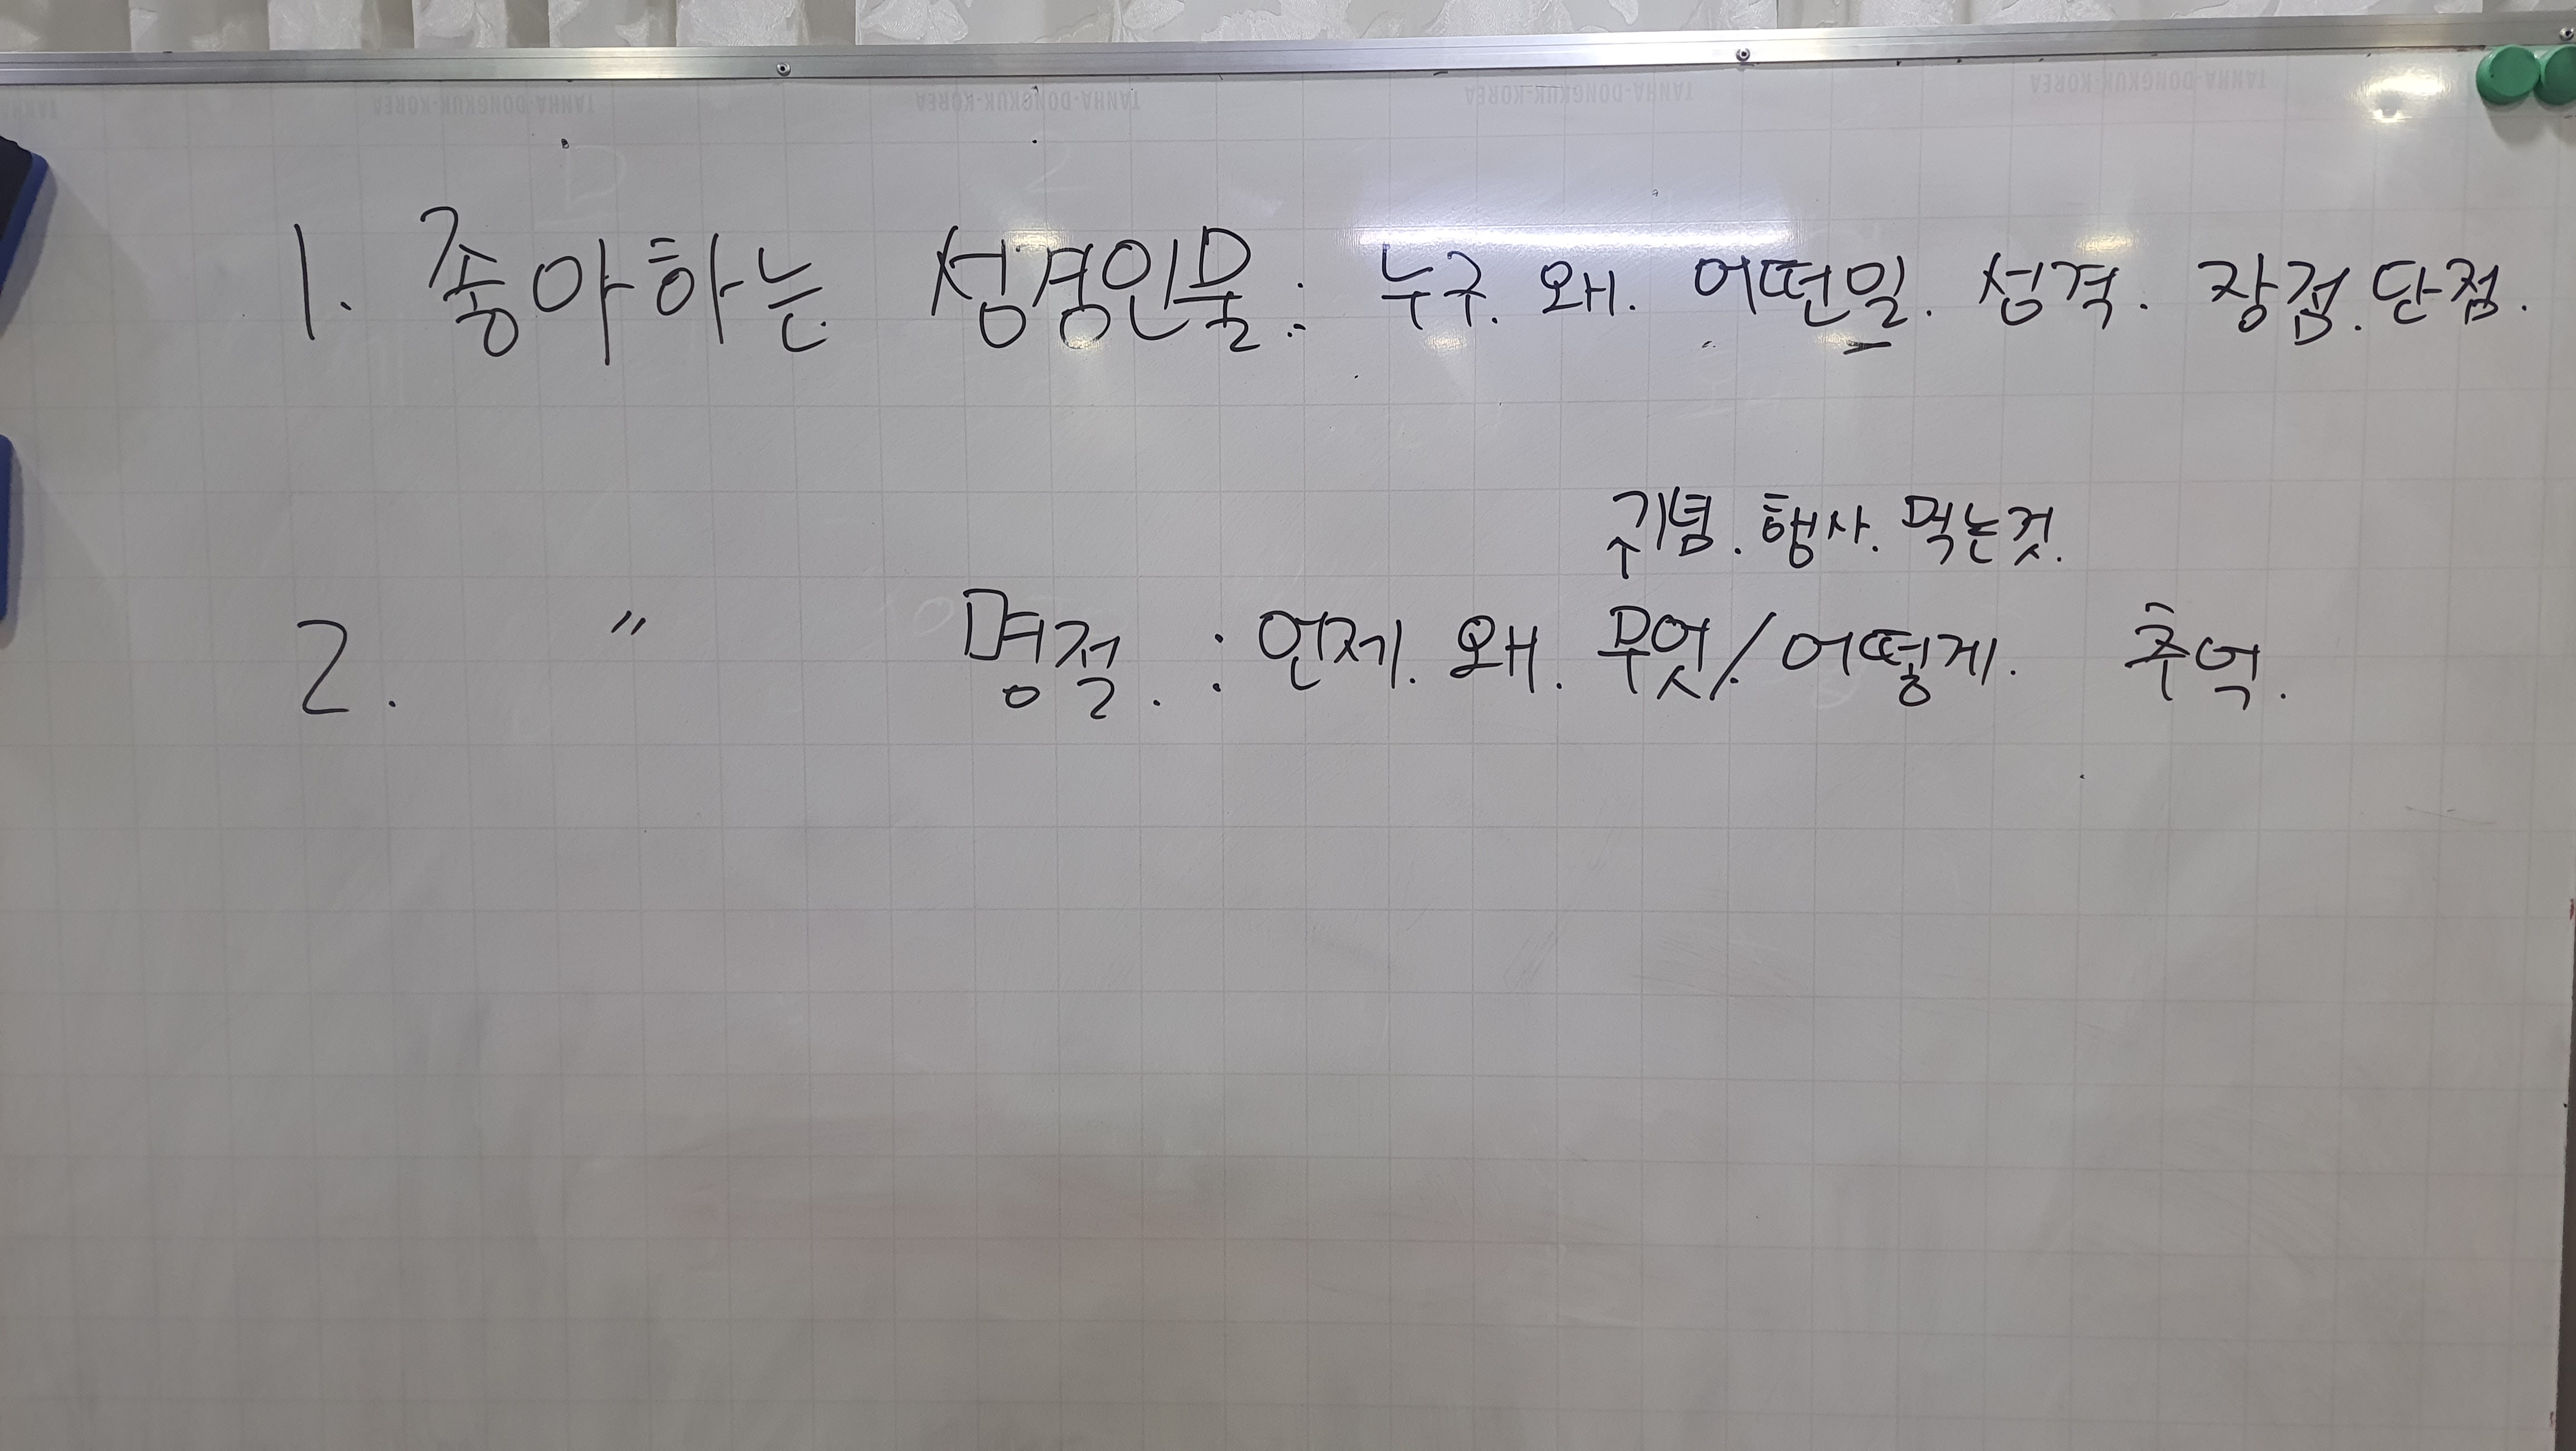 TANHA-DONGKUK-KOREA TANHA-DONGKUK-KOREA TANHA-DONGKUK-KOREA TANHA-DONGKUK-KOREA
1. 좋아하는 성경인물 : 누구. 왜. 어떤일. 성격. 장점. 단점.
기념. 행사. 먹는것.
↑
2. 〃 명절. : 언제. 왜. 무엇/어떻게. 추억.